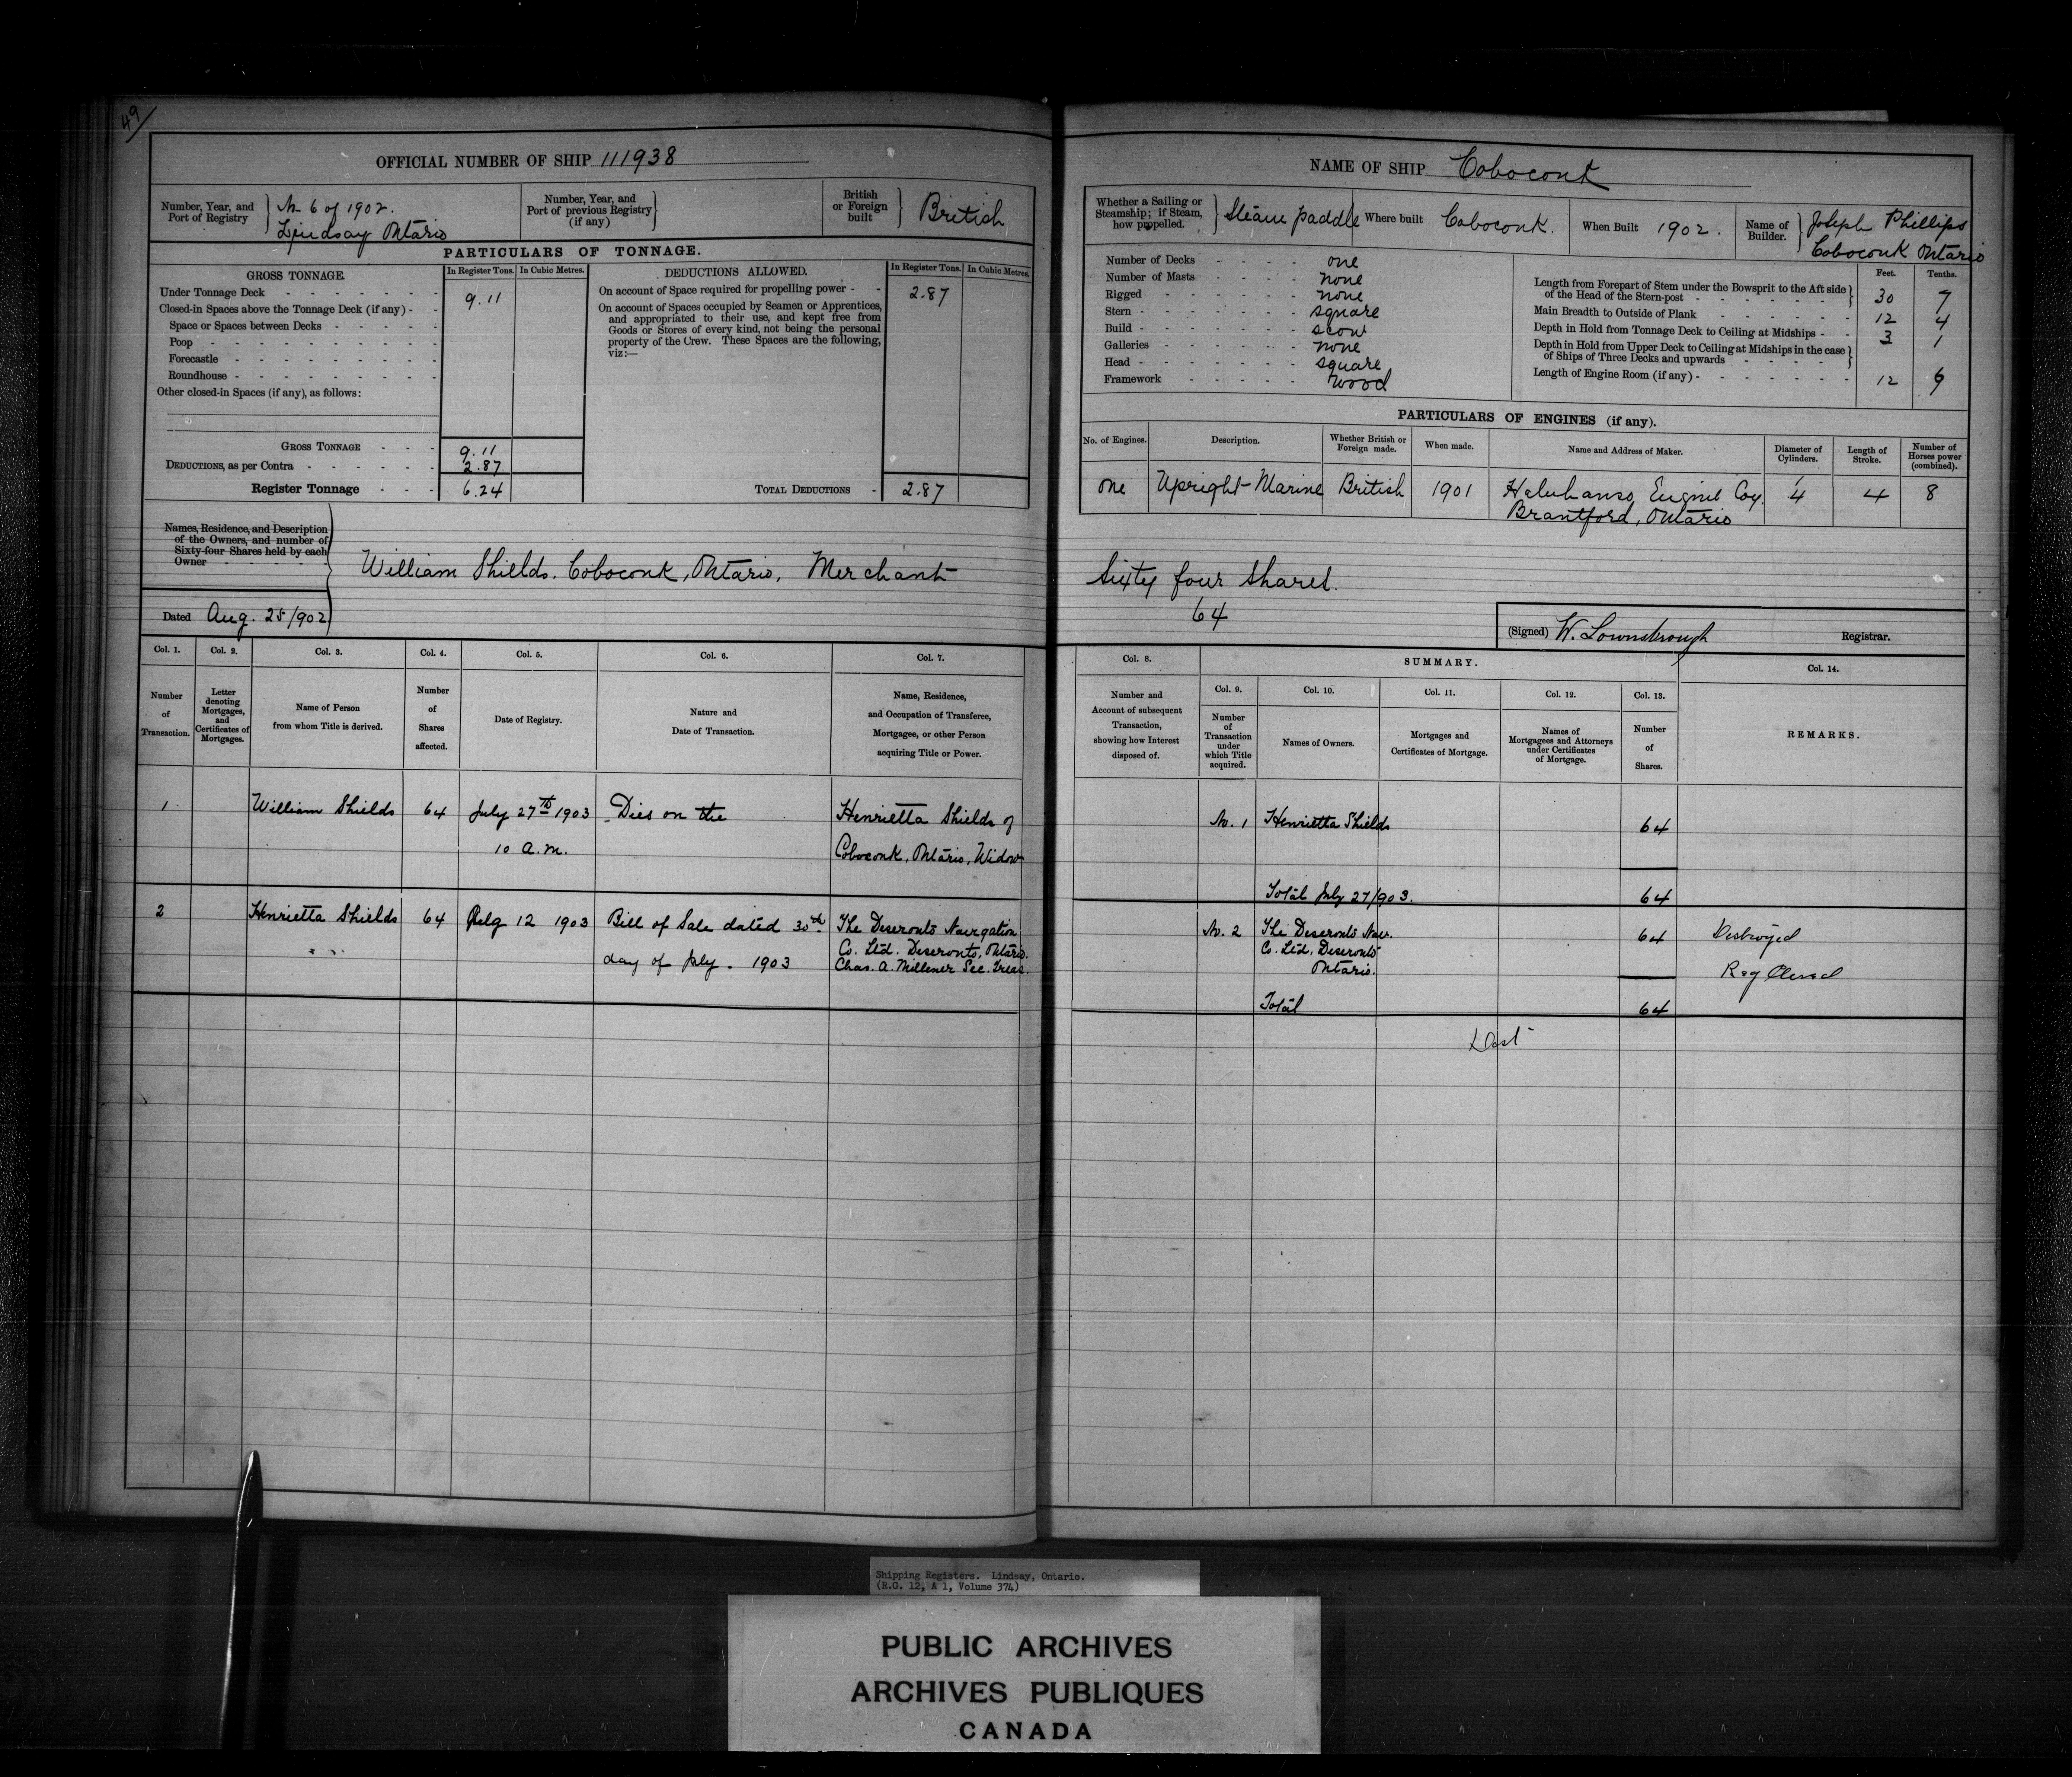 49
OFFICIAL NUMBER OF SHIP 111938
Number, Year, and Port of Registry
No 6 of 1902.
Lindsay Ontario
Number, Year, and Port of previous Registry (if any)
British or Foreign built
British
PARTICULARS OF TONNAGE.
GROSS TONNAGE.
In Register Tons.
In Cubic Metres.
DEDUCTIONS ALLOWED.
In Register Tons.
In Cubic Metres.
Under Tonnage Deck 9.11
Closed-in Spaces above the Tonnage Deck (if any)
Space or Spaces between Decks
Poop
Forecastle
Roundhouse
Other closed-in Spaces (if any), as follows:
On account of Space required for propelling power 2.87
On account of Spaces occupied by Seamen or Apprentices,
and appropriated to their use, and kept free from
Goods or Stores of every kind, not being the personal
property of the Crew. These Spaces are the following,
viz:—
GROSS TONNAGE 9.11
DEDUCTIONS, as per Contra 2.87
Register Tonnage 6.24
TOTAL DEDUCTIONS 2.87
Names, Residence, and Description
of the Owners, and number of
Sixty-four Shares held by each
Owner
William Shields. Coboconk, Ontario, Merchant
Dated Aug. 25/902
Col. 1. Col. 2. Col. 3. Col. 4. Col. 5. Col. 6. Col. 7.
Number of Transaction.
Letter denoting Mortgages, and Certificates of Mortgages.
Name of Person from whom Title is derived.
Number of Shares affected.
Date of Registry.
Nature and Date of Transaction.
Name, Residence, and Occupation of Transferee, Mortgagee, or other Person acquiring Title or Power.
1 William Shields 64 July 27th 1903 Dies on the Henrietta Shields of
10 a.m. Coboconk, Ontario, Widow
2 Henrietta Shields 64 12 1903 Bill of Sale dated 30th The Deseronto Navigation
Co. Ltd. Deseronto, Ontario.
day of July. 1903 Chas. A. Millener Sec. Treas.
NAME OF SHIP Coboconk
Whether a Sailing or Steamship; if Steam, how propelled.
Steam paddle
Where built Coboconk.
When Built 1902.
Name of Builder.
Joseph Phillips
Coboconk Ontario
Number of Decks one
Number of Masts none
Rigged none
Stern square
Build scow
Galleries none
Head square
Framework wood
Feet. Tenths.
Length from Forepart of Stem under the Bowsprit to the Aft side
of the Head of the Stern-post 30 7
Main Breadth to Outside of Plank 12 4
Depth in Hold from Tonnage Deck to Ceiling at Midships 3 1
Depth in Hold from Upper Deck to Ceiling at Midships in the case
of Ships of Three Decks and upwards
Length of Engine Room (if any) 12 6
PARTICULARS OF ENGINES (if any).
No. of Engines.
Description.
Whether British or Foreign made.
When made.
Name and Address of Maker.
Diameter of Cylinders.
Length of Stroke.
Number of Horses power (combined).
one Upright Marine British 1901 Coy. 4 4 8
Brantford, Ontario
Sixty four Shares.
64
(Signed) W. Lownsbrough Registrar.
Col. 8.
SUMMARY.
Col. 14.
Col. 9. Col. 10. Col. 11. Col. 12. Col. 13.
Number and Account of subsequent Transaction, showing how Interest disposed of.
Number of Transaction under which Title acquired.
Names of Owners.
Mortgages and Certificates of Mortgage.
Names of Mortgagees and Attorneys under Certificates of Mortgage.
Number of Shares.
REMARKS.
No. 1 Henrietta Shields 64
Total July 27/903. 64
No. 2 The Deseronto Nav. 64 Destroyed
Co. Ltd. Deseronto
Ontario. Reg Closed
Total 64
Shipping Registers. Lindsay, Ontario.
(R.G. 12, A 1, Volume 374)
PUBLIC ARCHIVES
ARCHIVES PUBLIQUES
CANADA